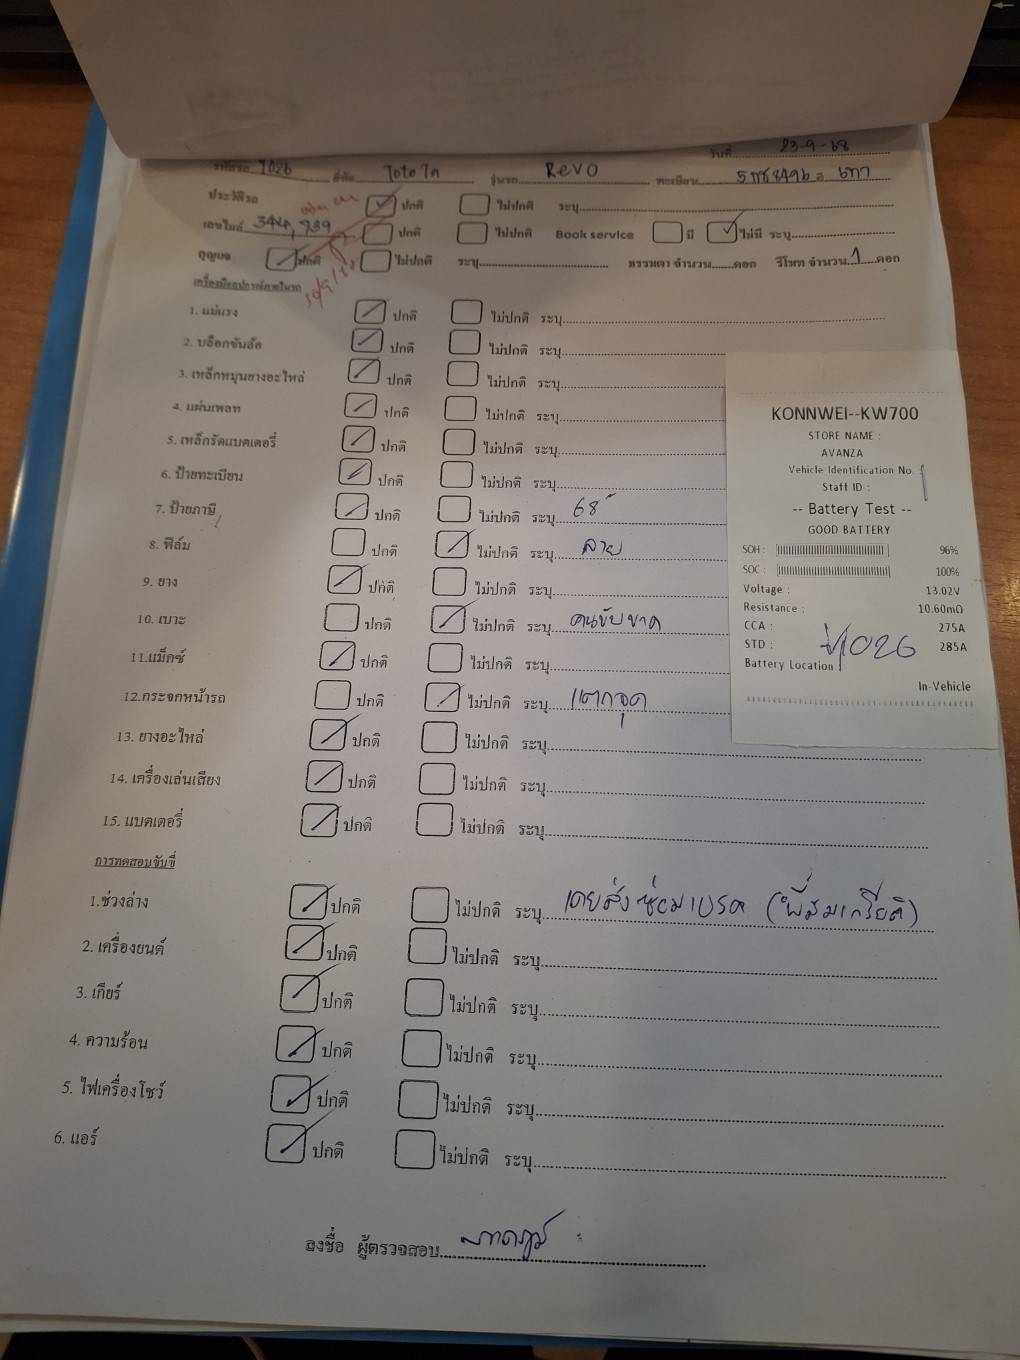 รหัสรถ 1026 ยี่ห้อ โตโยโต รุ่นรถ Revo ทะเบียน กทม
วันที่ 23-9-68
ประวัติรถ ปกติ ไม่ปกติ ระบุ
เลขไมล์ 344,939 ปกติ ไม่ปกติ Book service มี ไม่มี ระบุ
กุญแจ ปกติ ไม่ปกติ ระบุ ธรรมดา จำนวน ดอก รีโมท จำนวน 1 ดอก
เครื่องมืออุปกรณ์ภายในรถ
1. แม่แรง ปกติ ไม่ปกติ ระบุ
2. บล็อกขันล้อ ปกติ ไม่ปกติ ระบุ
3. เหล็กหมุนยางอะไหล่ ปกติ ไม่ปกติ ระบุ
4. แผ่นเพลท ปกติ ไม่ปกติ ระบุ
5. เหล็กรัดแบตเตอรี่ ปกติ ไม่ปกติ ระบุ
6. ป้ายทะเบียน ปกติ ไม่ปกติ ระบุ
7. ป้ายภาษี ปกติ ไม่ปกติ ระบุ 68
8. ฟิล์ม ปกติ ไม่ปกติ ระบุ ลาย
9. ยาง ปกติ ไม่ปกติ ระบุ
10. เบาะ ปกติ ไม่ปกติ ระบุ คนขับขาด
11.แม็กซ์ ปกติ ไม่ปกติ ระบุ
12.กระจกหน้ารถ ปกติ ไม่ปกติ ระบุ แตกจุด
13. ยางอะไหล่ ปกติ ไม่ปกติ ระบุ
14. เครื่องเล่นเสียง ปกติ ไม่ปกติ ระบุ
15. แบตเตอรี่ ปกติ ไม่ปกติ ระบุ
KONNWEI--KW700
STORE NAME :
AVANZA
Vehicle Identification No.
Staff ID :
-- Battery Test --
GOOD BATTERY
SOH : 96%
SOC : 100%
Voltage : 13.02V
Resistance : 10.60mΩ
CCA : 275A
STD : 285A
1026
Battery Location
In-Vehicle
การทดสอบขับขี่
1.ช่วงล่าง ปกติ ไม่ปกติ ระบุ เคยส่งซ่อมเบรค (พี่สมเกียรติ)
2. เครื่องยนต์ ปกติ ไม่ปกติ ระบุ
3. เกียร์ ปกติ ไม่ปกติ ระบุ
4. ความร้อน ปกติ ไม่ปกติ ระบุ
5. ไฟเครื่องโชว์ ปกติ ไม่ปกติ ระบุ
6. แอร์ ปกติ ไม่ปกติ ระบุ
ลงชื่อ ผู้ตรวจสอบ